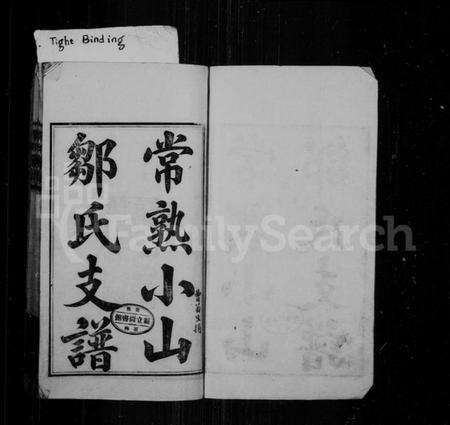 Tight Binding
常熟小山
鄒氏支譜
FamilySearch